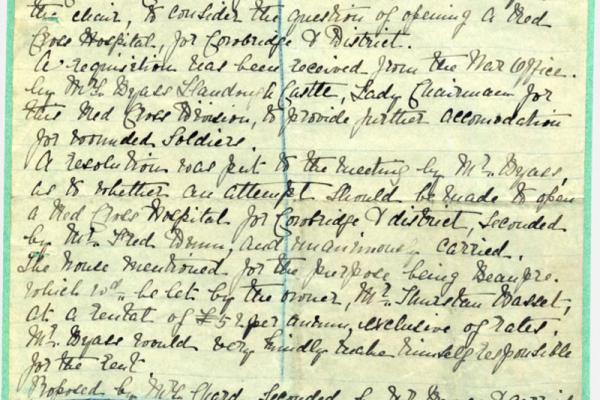 the chair, to consider the question of opening a Red
Cross Hospital, for Cowbridge & District.
A requisition has been received from the War Office.
by Mrs. Byass Llandough Castle, Lady Chairman for
this Red Cross Division, to provide further accomodation
for wounded Soldiers.
A resolution was put to the meeting by Mr. Byass,
as to whether an attempt should be made to open
a Red Cross Hospital for Cowbridge & district, seconded
by Mr. Fred Dunn, and unanimously carried.
The house mentioned for the purpose being Beaupre.
which wd. be let by the owner, Mr. Thurstan Basset,
at a rental of £52 per annum, exclusive of rates.
Mr. Byass would very kindly make himself responsible
for the rent.
Proposed by Mrs. Seconded by